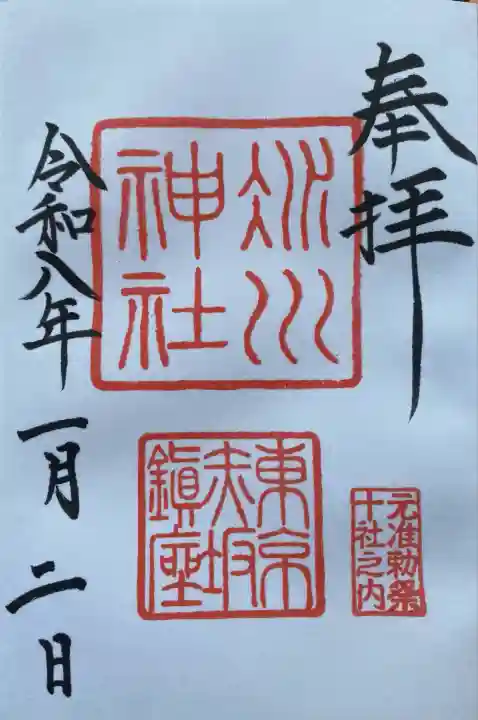 奉拝
氷川
神社
東京
赤坂
鎮座
元准勅祭
十社之内
令和八年 一月 二日